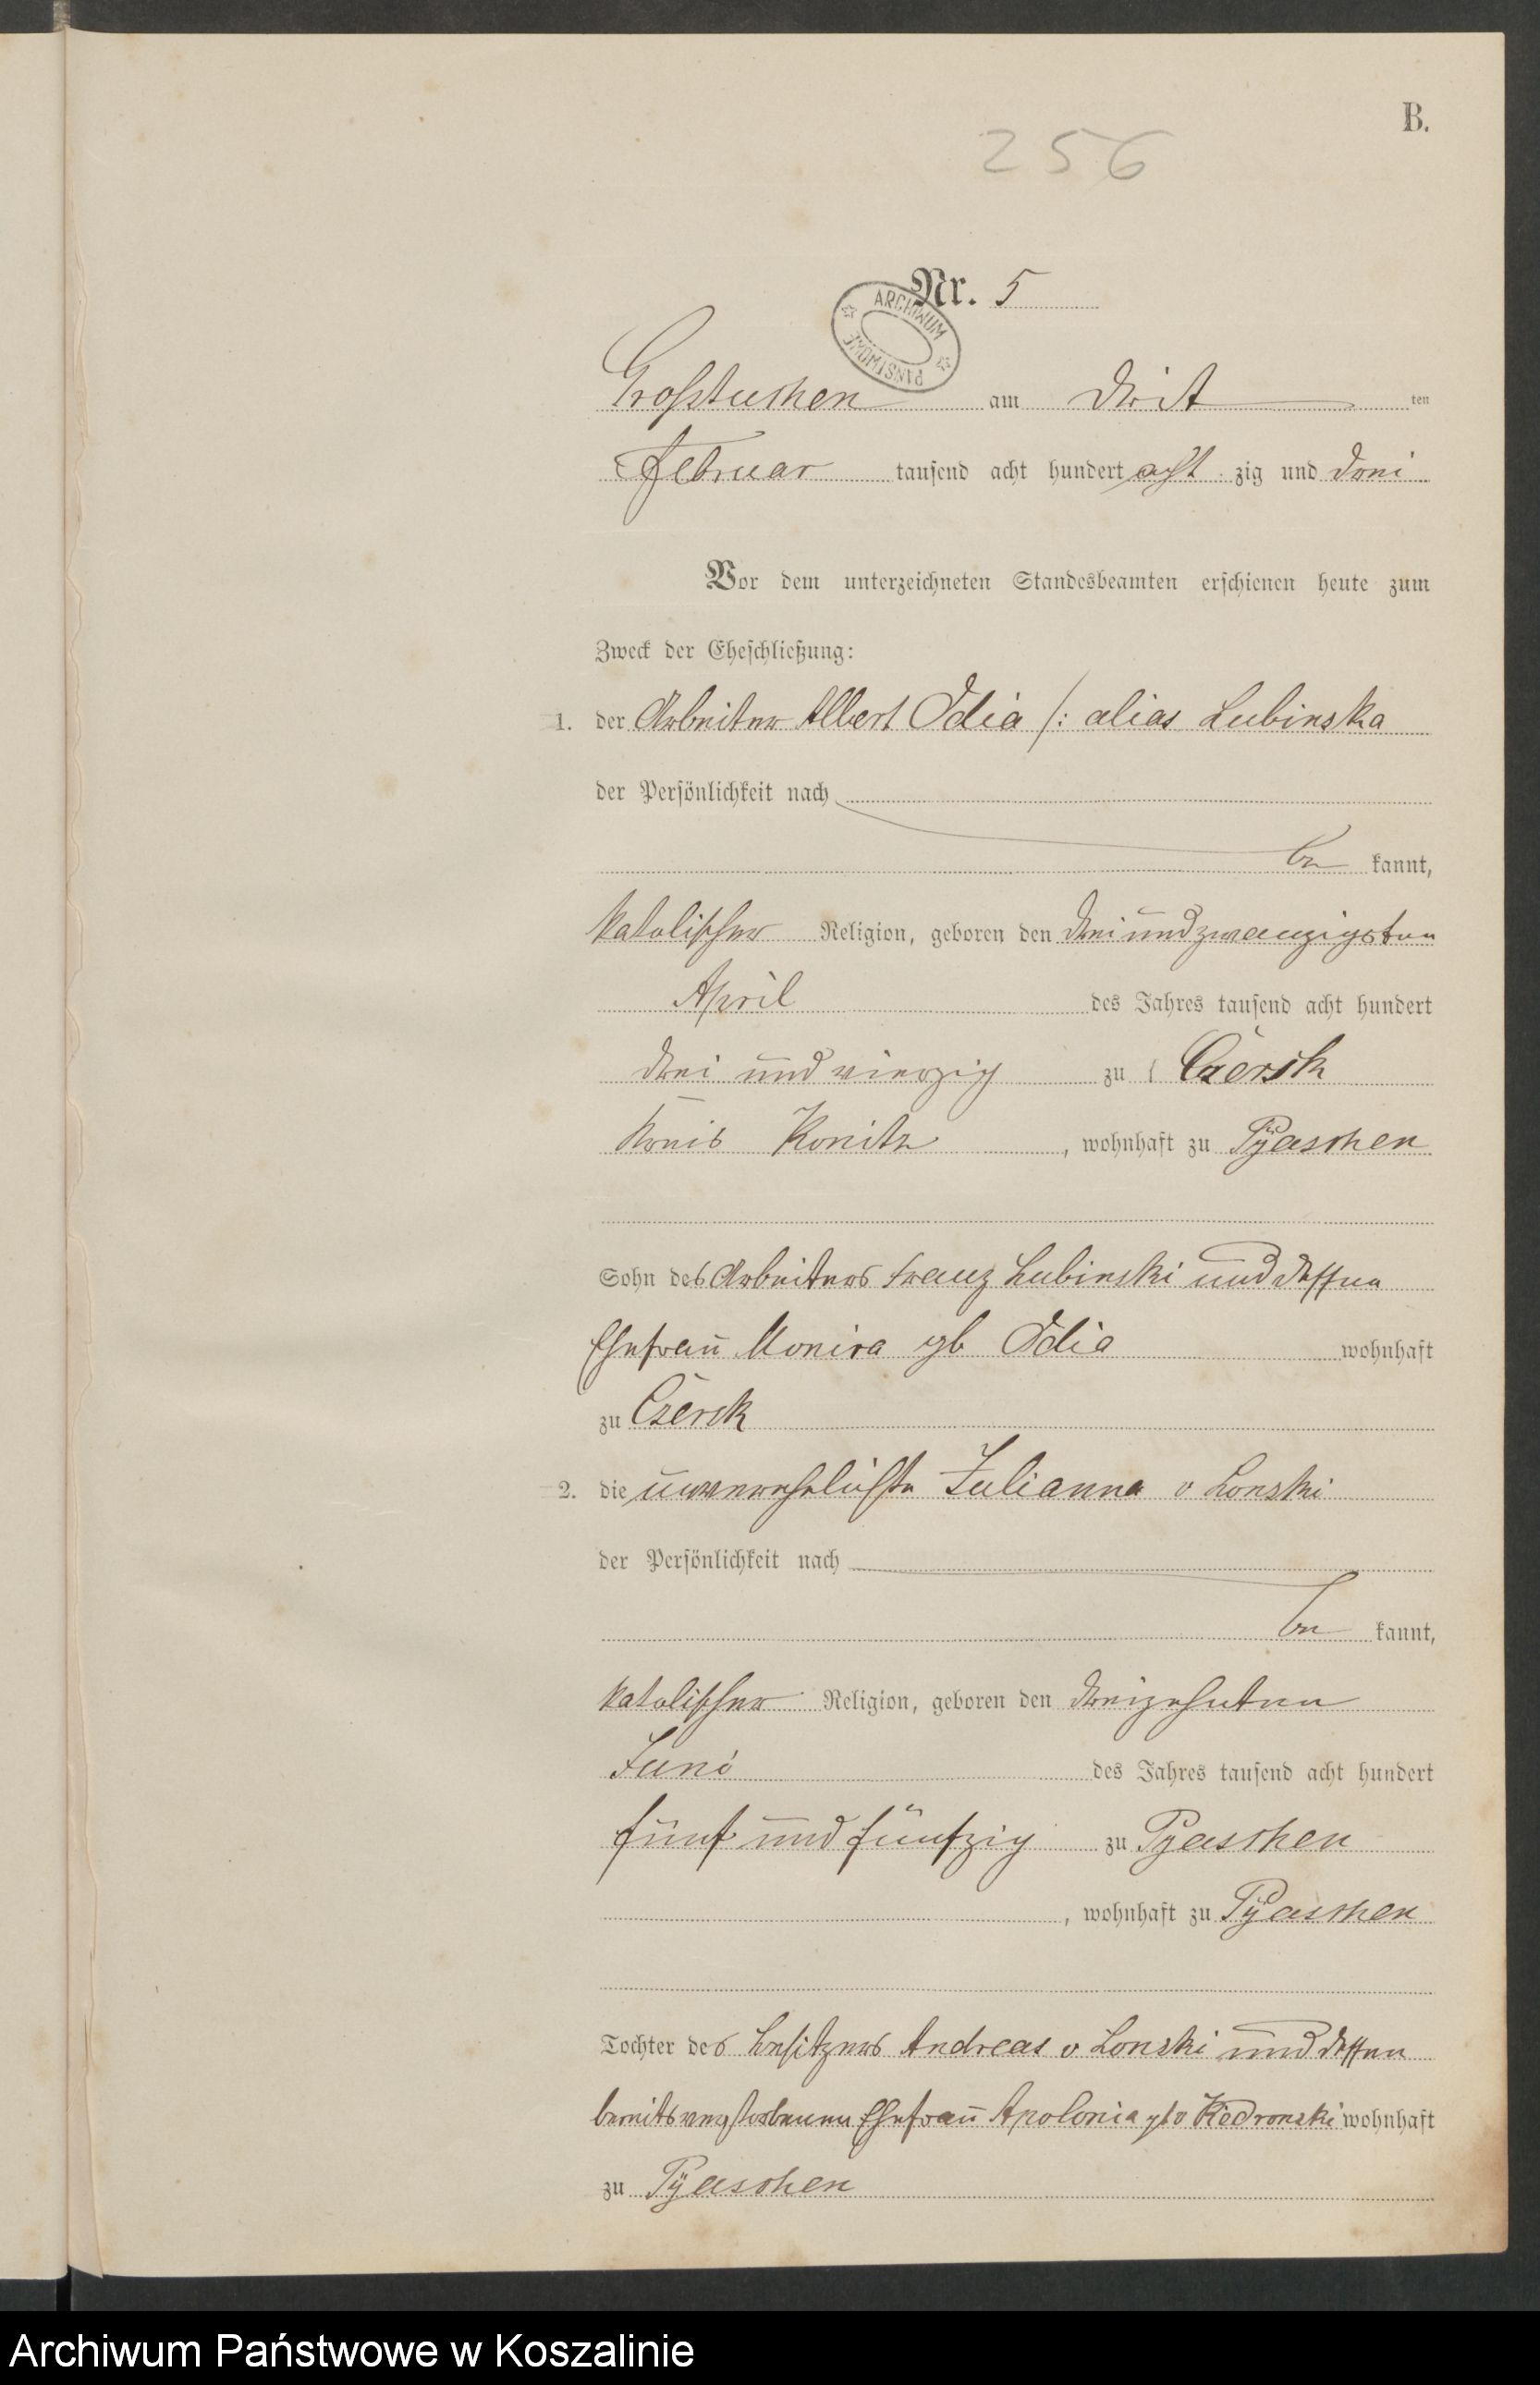 B.
256
Nr. 5
ARCHIWUM PAŃSTWOWE
Großtuchen am dritt ten
Februar tausend acht hundert acht zig und drei
Vor dem unterzeichneten Standesbeamten erschienen heute zum
Zweck der Eheschließung:
1. der Arbeiter Albert Odia /: alias Lubinska
der Persönlichkeit nach
be kannt,
katolischer Religion, geboren den drei und zwanzigsten
April des Jahres tausend acht hundert
drei und vierzig zu Czersk
Kreis Konitz, wohnhaft zu Pyaschen
Sohn des Arbeiters Franz Lubinski und dessen
Ehefrau Monica gb Odia wohnhaft
zu Czersk
2. die unverehelichte Julianna v Lonski
der Persönlichkeit nach
be kannt,
katolischer Religion, geboren den dreizehnten
Juni des Jahres tausend acht hundert
fünf und fünfzig zu Pyaschen
, wohnhaft zu Pyaschen
Tochter des Besitzers Andreas v Lonski und dessen
bereits verstorbenen Ehefrau Apolonia gb v Kiedronski wohnhaft
zu Pyaschen
Archiwum Państwowe w Koszalinie